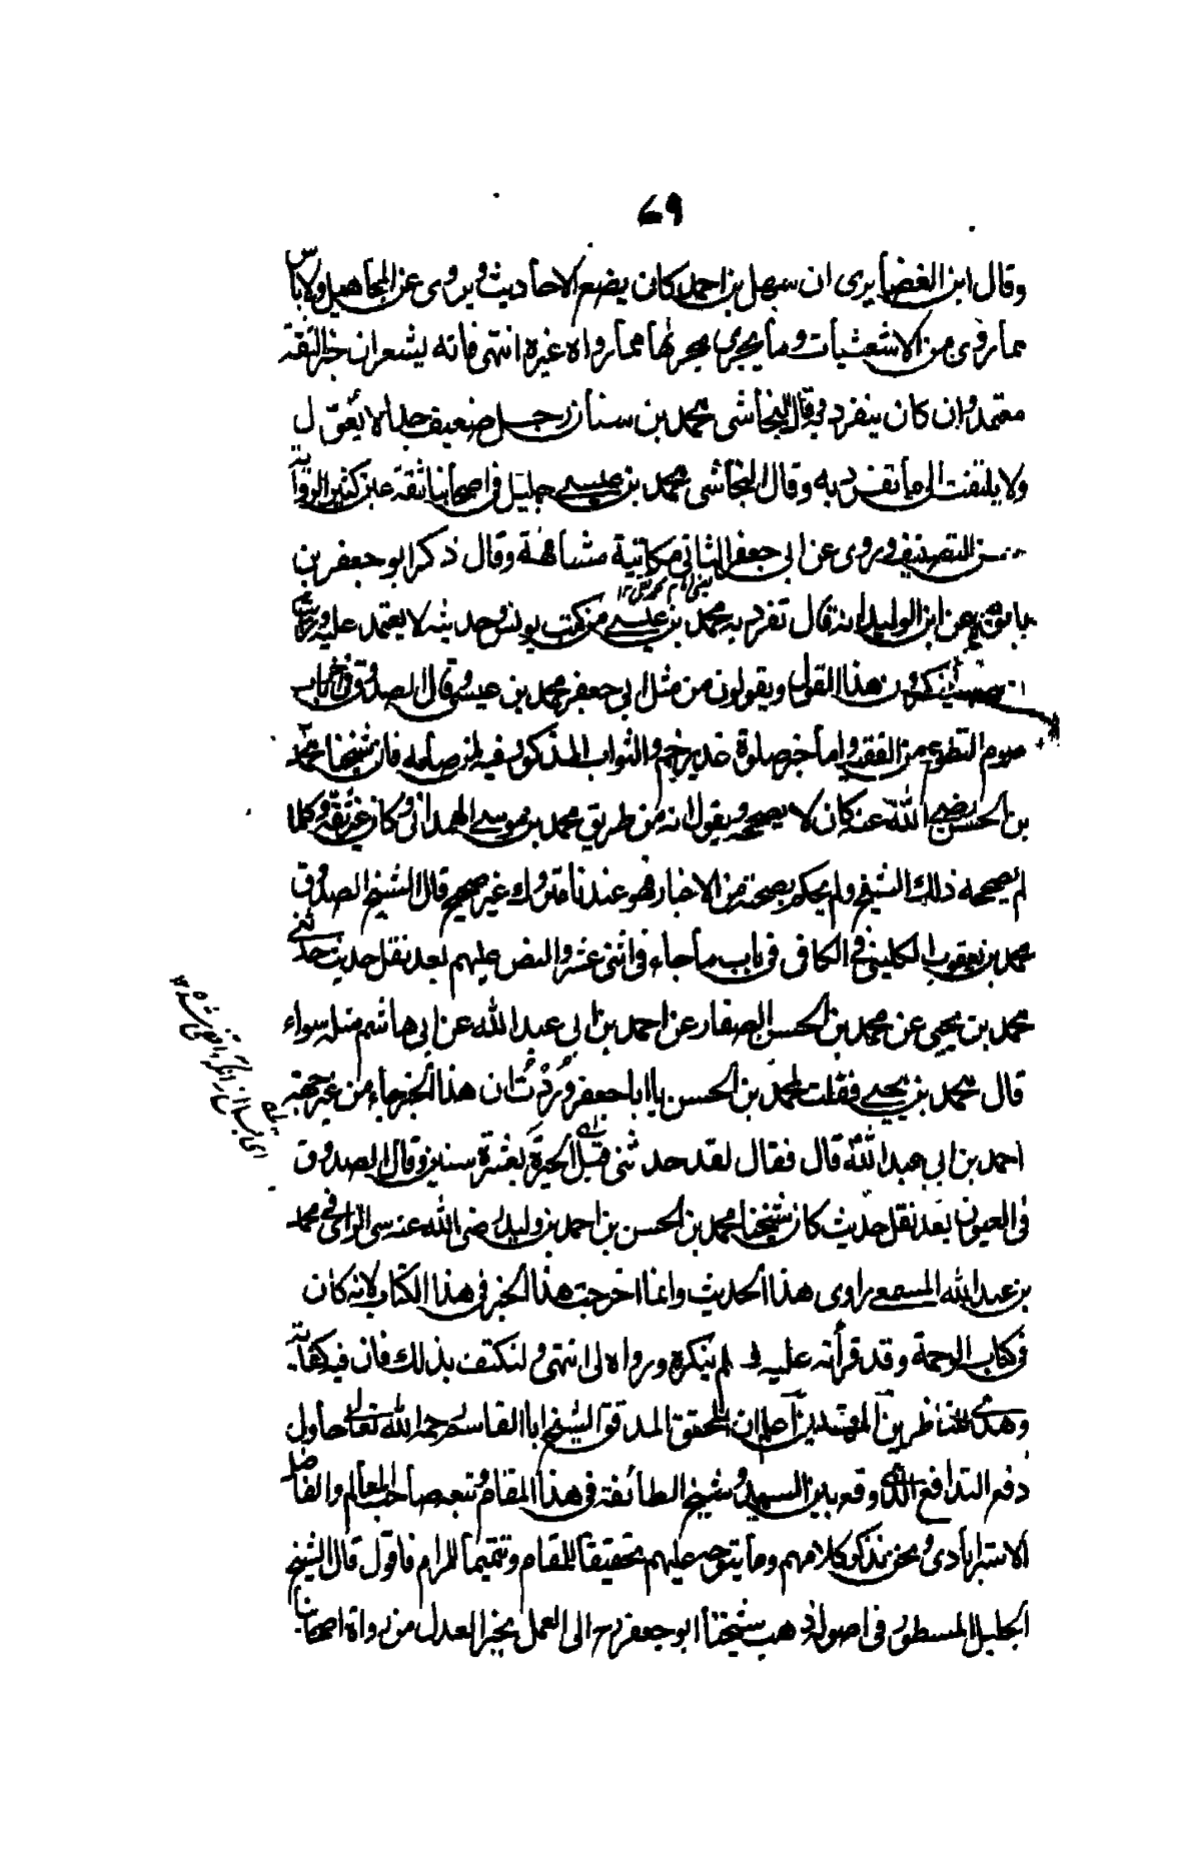 ٦٩
وقال ابن الغضایری ان سهل بن احمد کان یضع الاحادیث ویروی عن المجاهیل ولا باس
مما روی من الاشعثیات وما یجری مجریها مما رواه غیره انتهی فانه یشعر ان خبر الثقة
معتمد وان کان ینفرد وقال النجاشی محمد بن سنان رجل ضعیف جدا لا یعول
ولا یلتفت الی ما تفرد به وقال النجاشی محمد بن عیسی جلیل فی اصحابنا ثقة عین کثیر الروایة
حسن التصنیف وروی عن ابی جعفر الثانی مکاتبة مشافهة وقال ذکر ابو جعفر بن
بابویه عن ابن الولید انه قال تفرد به محمد بن عیسی من کتب یونس وحدیثه لا یعتمد علیه ورایت
اصحابنا ینکرون هذا القول ویقولون من مثل ابی جعفر محمد بن عیسی وقال الصدوق فی باب
صوم التطوع من الفقیه واما خبر صلوة غدیر خم والثواب المذکور فیه لمن صامه فان شیخنا محمد
بن الحسن رضی الله عنه کان لا یصححه ویقول انه من طریق محمد بن موسی الهمدانی وکان غیر ثقة وکلما
لم یصححه ذلك الشیخ ولم یحکم بصحته من الاخبار فهو عندنا متروك غیر صحیح قال الشیخ الصدوق
محمد بن یعقوب الکلینی فی الکافی فی باب ما جاء فی اثنی عشر والنص علیهم بعد نقل حدیث حدثنی
محمد بن یحیی عن محمد بن الحسن الصفار عن احمد بن ابی عبد الله عن ابی هاشم مثله سواء
قال محمد بن یحیی فقلت لمحمد بن الحسن یا ابا جعفر وددت ان هذا الخبر جاء من غیر جهة
احمد بن ابی عبد الله قال فقال لقد حدثنی قبل الحیرة بعشرة سنین وقال الصدوق
فی العیون بعد نقل حدیث کان شیخنا محمد بن الحسن بن احمد بن ولید رضی الله عنه سیئ الرای فی محمد
بن عبد الله المسمعی راوی هذا الحدیث وانما اخرجت هذا الخبر فی هذا الکتاب لانه کان
فی کتاب الرحمة وقد قرأته علیه فلم ینکره ورواه لی انتهی ولنکتف بذلك فان فیه کفایة
للناظرین المهتدین اعلم ان المحقق المدقق الشیخ ابا القاسم رحمه الله تعالی حاول
دفع التدافع الذی وقع بین السید وشیخ الطائفة فی هذا المقام وتبعه صاحب المعالم والفاضل
الاسترابادی ونحن نذکر کلامهم وما یتوجه علیهم تحقیقا للمقام وتتمیما للمرام فاقول قال الشیخ
الجلیل المسطور فی اصوله ذهب شیخنا ابو جعفر ره الی العمل بخبر العدل من رواة اصحابنا